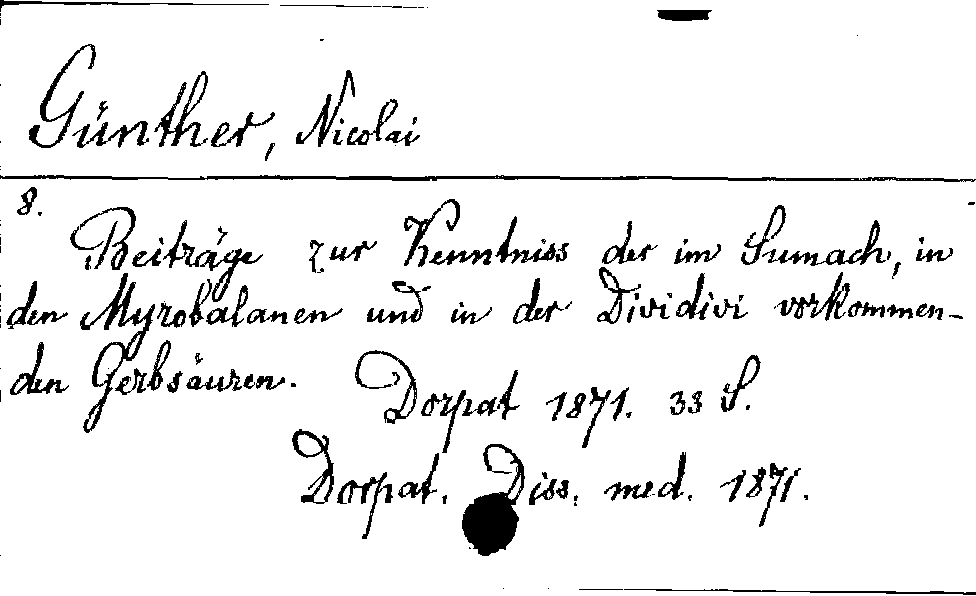 Günther, Nicolai
8.
Beiträge zur Kenntniss der im Sumach, in
den Myrobalanen und in der Dividivi vorkommen-
den Gerbsäuren.
Dorpat 1871. 33 S.
Dorpat. Diss. med. 1871.